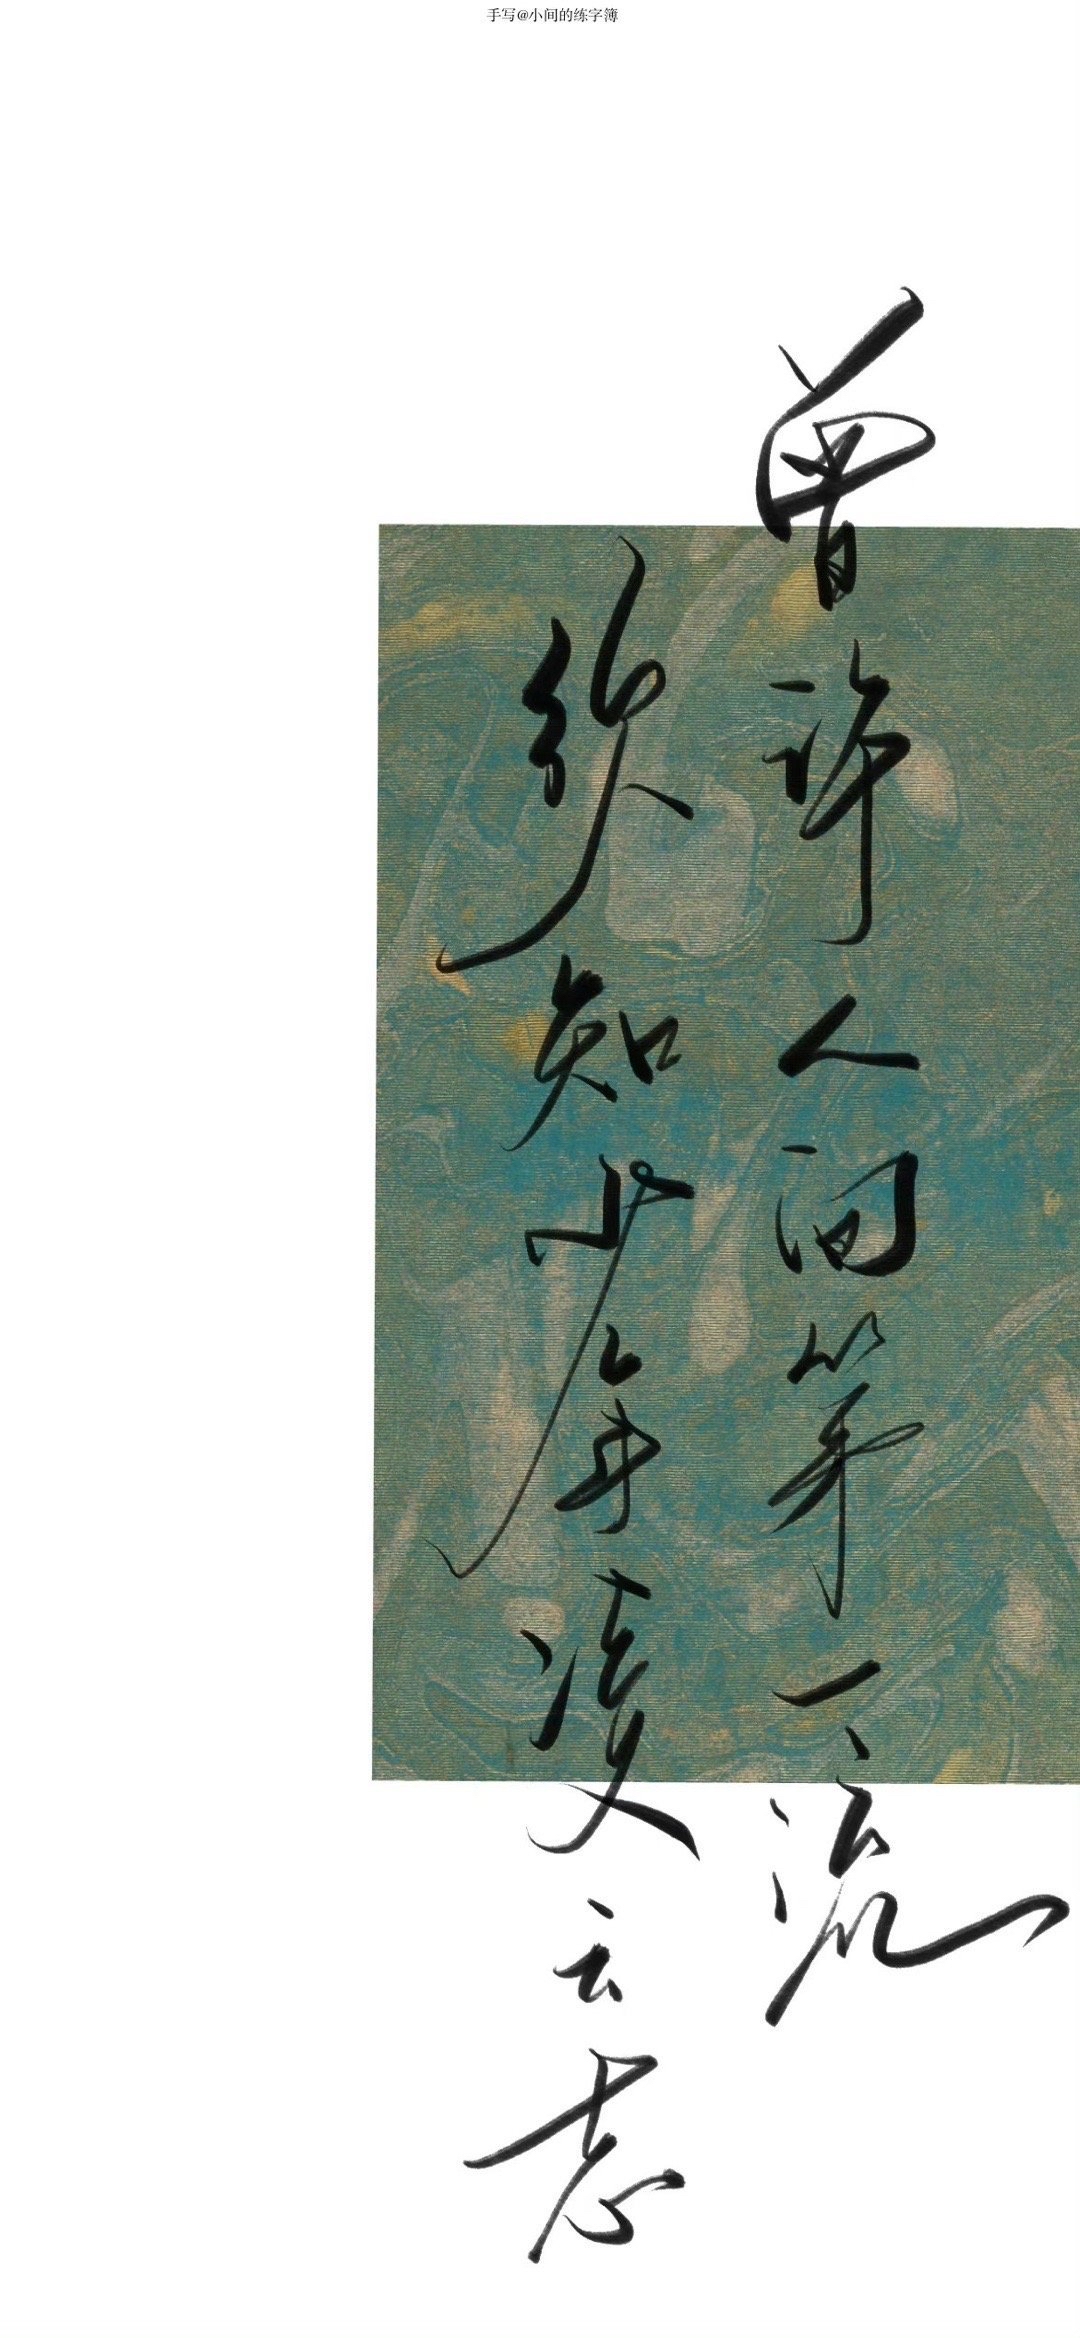 手写@小间的练字簿
曾许人间第一流
须知少年凌云志